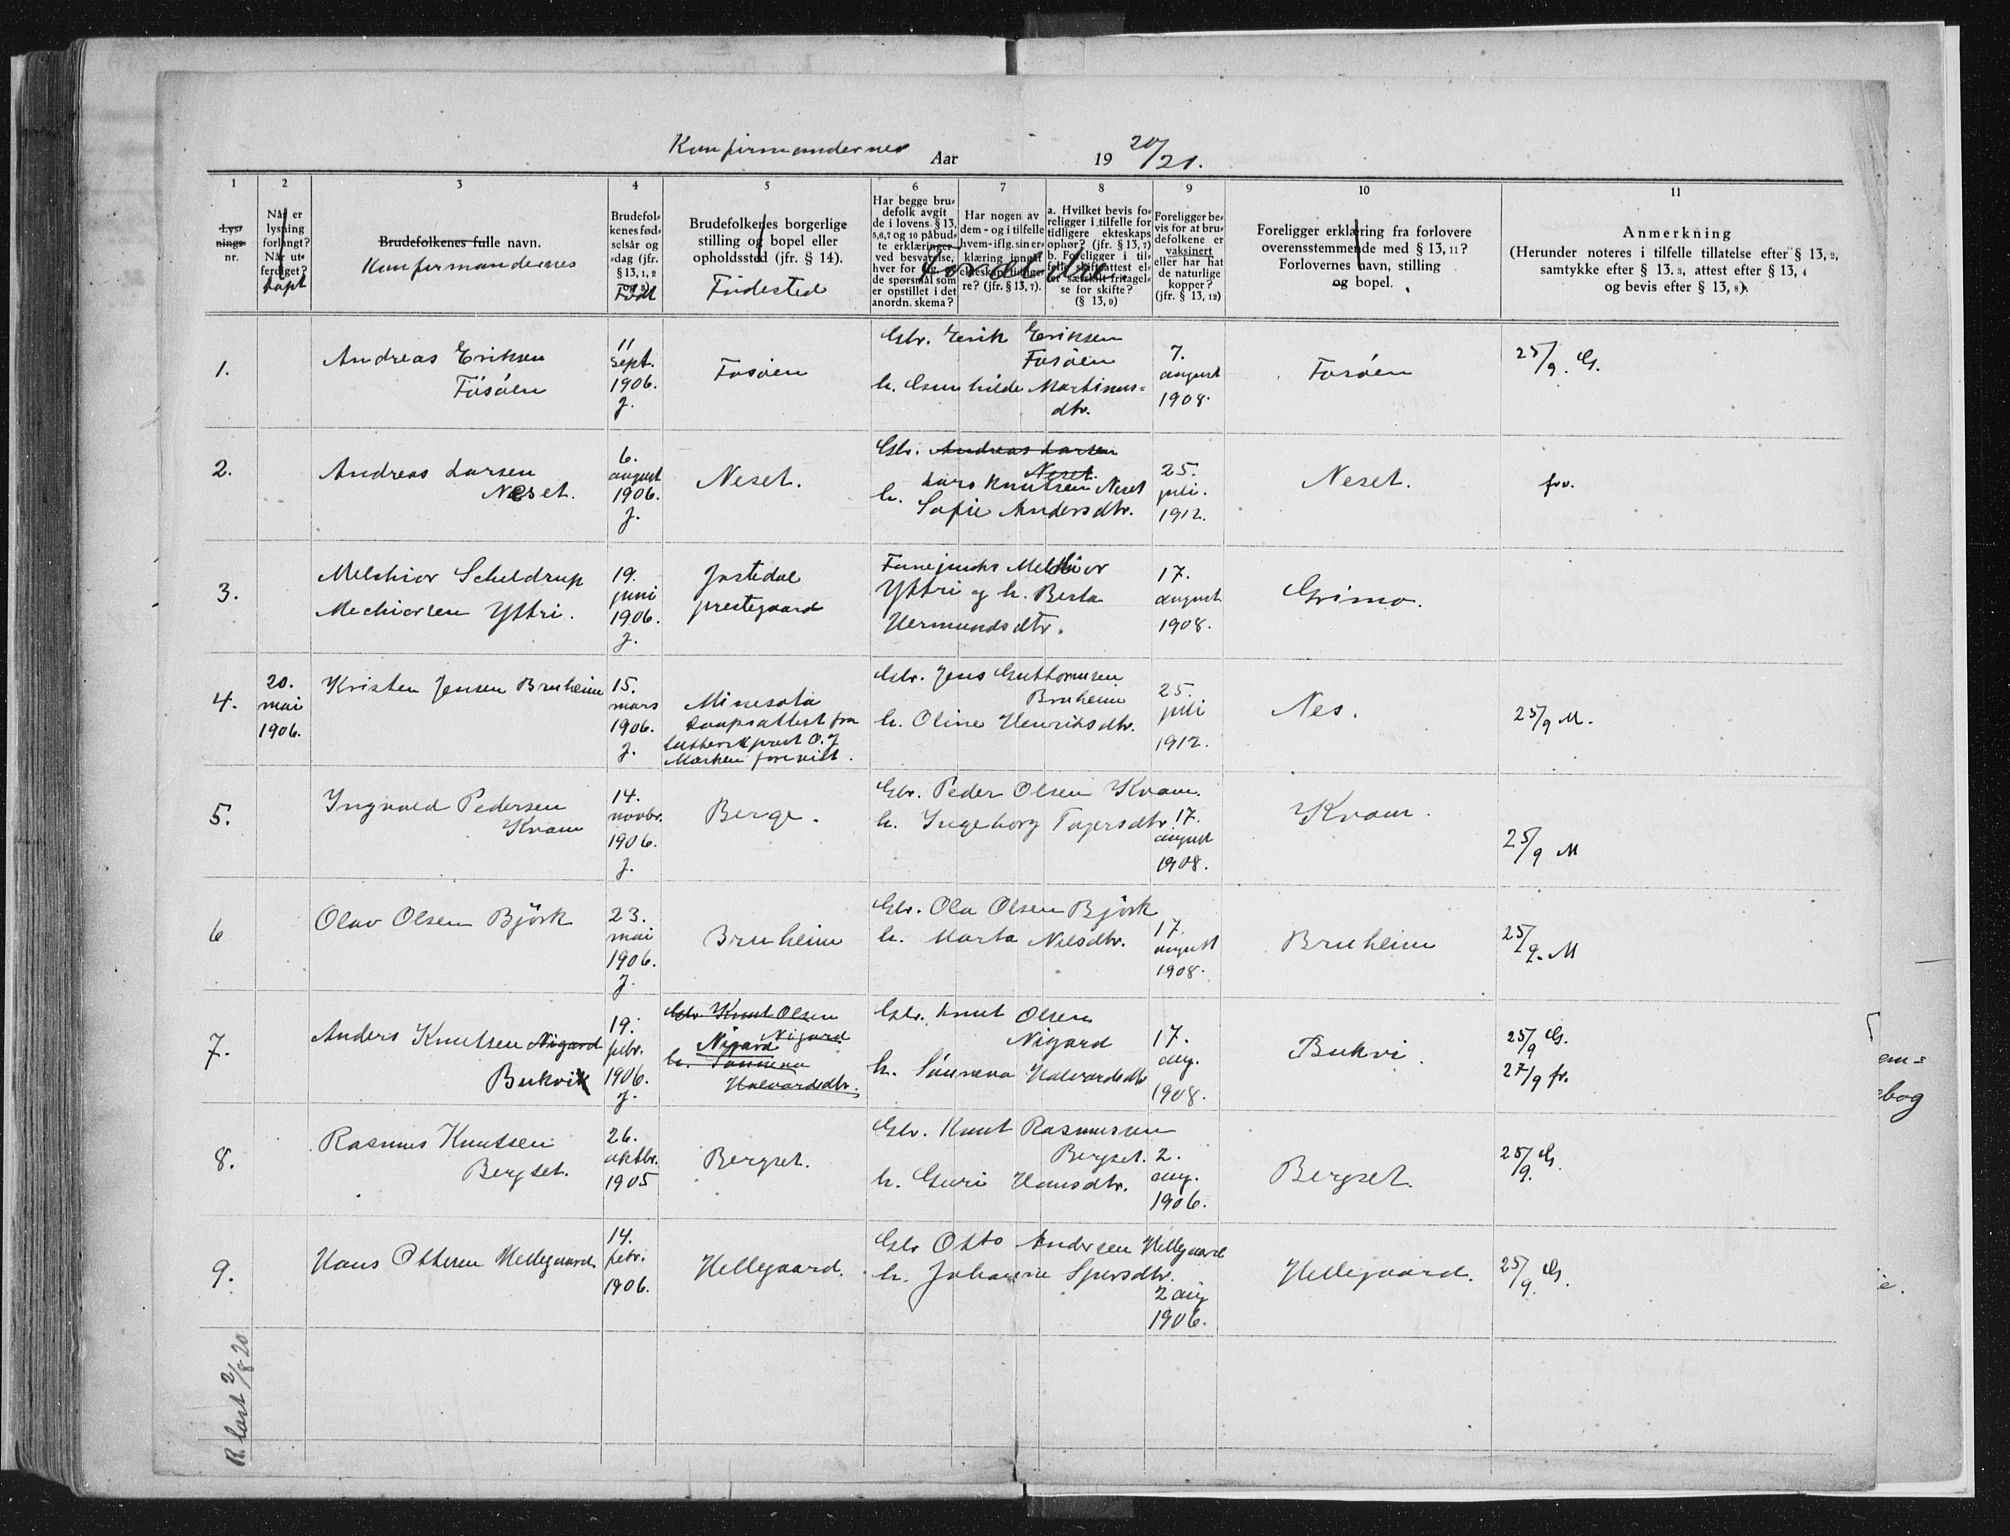 Konfirmandernes Aar 19 20/21.
1 2 3 4 5 6 7 8 9 10 11
Lys-
nings-
nr.
Når er
lysning
forlangt?
Når ut-
ferdiget?
Døpt
Brudefolkenes fulle navn.
Konfirmandernes
Brudefol-
kenes fød-
selsår og
-dag (jfr.
§ 13, 1, 2
Født
Brudefolkenes borgerlige
stilling og bopel eller
opholdssted (jfr. § 14).
Födested
Har begge bru-
defolk avgit
de i lovens § 13,
5,6,7 og 10 påbud-
te erklæringer
ved besvarelse,
hver for sig, av
de spørsmål som
er opstillet i det
anordn. skema?
Har nogen av
dem - og i tilfelle
hvem - iflg. sin er-
klæring inngåt
ekteskap tidlige-
re? (jfr. § 13, 7).
a. Hvilket bevis fo-
religger i tilfelle for
tidligere ekteskaps
ophør? (jfr. § 13, 7)
b. Foreligger i til-
felle skifteattest el-
ler særskilt fritagel-
se for skifte?
(§ 13, 9)
Forældre.
Foreligger be-
vis for at bru-
defolkene er
vaksinert
eller har hat
de naturlige
kopper?
(jfr. § 13, 12)
Foreligger erklæring fra forlovere
overensstemmende med § 13, 11?
Forlovernes navn, stilling
og bopel.
Anmerkning
(Herunder noteres i tilfelle tillatelse efter § 13, 2,
samtykke efter § 13. 3, attest efter § 13, 4
og bevis efter § 13, 8).
1.
Andreas Eriksen
Fösöen
11
Sept.
1906.
J.
Fosöen
Gbr. Erik Eriksen
Fosöen
h. Gunhilde Martinus-
dtr.
7.
august
1908.
Fosöen
25/9. G.
2.
Andreas Larsen
Neset.
6.
august
1906.
J.
Neset.
Gbr. Andreas Larsen
Neset.
Lars Knutsen Neset
h. Sofie Andersdtr.
25.
juli.
1912.
Neset.
frv.
3.
Melchior Scheldrup
Mechiorsen Yttri.
19.
juni
1906.
J.
Jostedal
prestegaard
Melchior
Yttri og h. Berta
Hermundsdtr.
17.
august
1908.
Grimo.
4.
20.
mai
1906.
Kristen Jensen Bruheim
15.
mars
1906.
J.
Minesota
Daapsattest fra
luthersk prest O. J.
forevist.
Gbr. Jens Guttormsen
Bruheim
h. Oline Henriksdtr.
25.
juli
1912.
Nes.
25/9 M.
5.
Ingvald Pedersen
Kvam
14.
novbr.
1906.
J.
Berge.
Gbr. Peder Olsen Kvam.
h. Ingeborg
17.
august
1908.
Kvam.
25/9 M
6
Olav Olsen Björk
23.
mai
1906.
J.
Bruheim
Gbr. Ola Olsen Björk
h. Marta Nilsdtr.
17.
august
1908.
Bruheim
25/9. M
7.
Anders Knutsen Nigard
Bukvi
19.
febr.
1906.
J.
Gbr Knut Olsen
Nigard
Nigard
h. Sünneva
Halvardsdtr.
Gbr. Knut Olsen
Nigard
h. Sünneva Halvardsdtr
17.
aug.
1908.
Bukvi.
25/9 G.
27/9 fr.
8.
Rasmus Knutsen
Bergset.
26.
oktbr.
1905
Bergset.
Gbr. Knut Rasmussen
Bergset.
h. Guri Hansdtr.
2.
aug.
1906.
Bergset.
25/9. G.
9.
Hans Ottesen Hellegaard.
14.
febr.
1906.
Hellegaard.
Gbr Otto Andersen Hellegaard
h. Johanne
2 aug
1906.
Hellegaard.
25/9. G.
R. løst 2/8 20
em=
ebog
e.